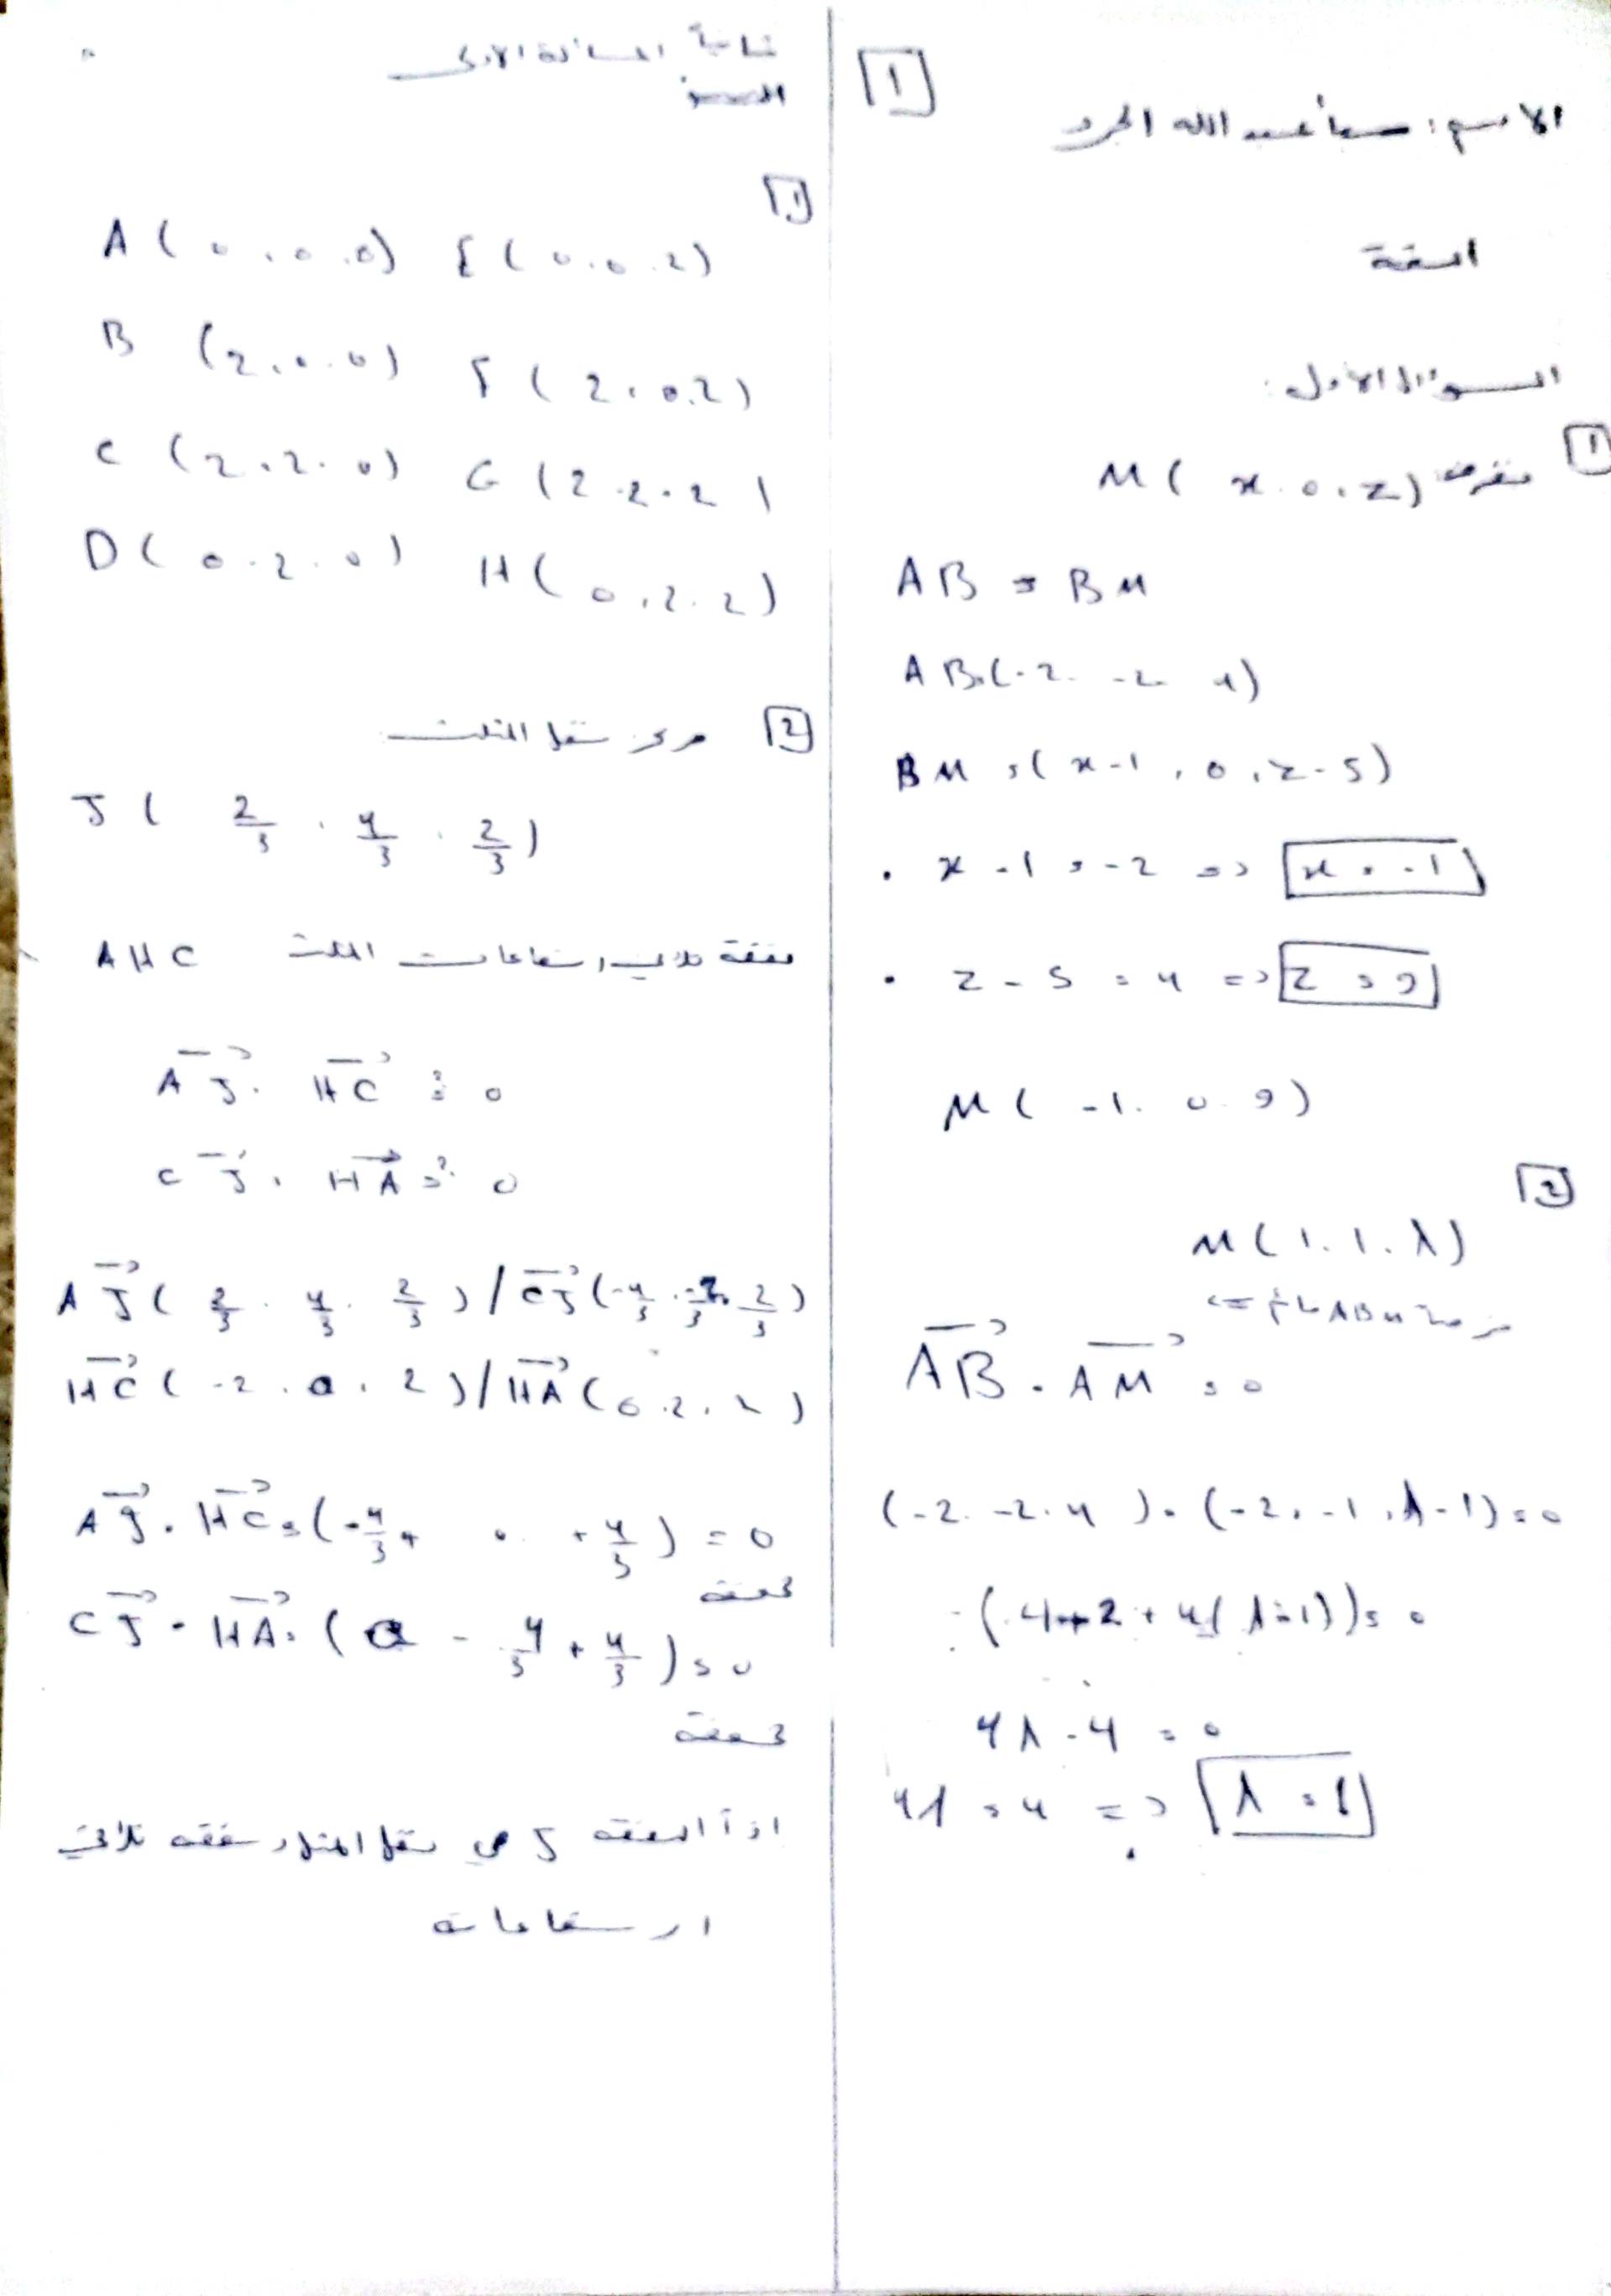 1
الاسم: صبا عبد الله
السؤال الأول:
1
نفرض M( x . 0 . z)
AB = BM
AB = (-2. -2 4)
BM = ( x-1 , 0 , z-5)
. x - 1 = -2 => x = -1
. z - 5 = 4 => z = 9
M( -1. 0 9)
2
M( 1. 1. λ)
AB . AM = 0
(-2. -2. 4 ) . (-2. -1 , λ-1) = 0
4λ - 4 = 0
4λ = 4 => λ = 1
ثانياً المسألة الأولى
1
A ( 0 . 0 .0) E ( 0 . 0 . 2)
B (2 . 0 . 0) F ( 2 . 0.2)
C (2 . 2 . 0) G (2 . 2 . 2 )
D( 0 . 2 . 0) H ( 0 . 2 . 2)
2 مركز ثقل المثلث
J ( 2/3 . 4/3 . 2/3 )
نقطة تلاقي ارتفاعات المثلث AHC
AJ . HC =? 0
CJ . HA =? 0
AJ ( 2/3 . 4/3 . 2/3 ) / CJ (-4/3 . -2/3 . 2/3 )
HC ( -2 . 0 . 2 ) / HA ( 0 . 2 . 2 )
AJ . HC = ( -4/3 + 0 + 4/3 ) = 0
محققة
CJ . HA = ( 0 - 4/3 + 4/3 ) = 0
محققة
اذاً النقطة J هي ثقل المثلث ونقطة تلاقي
ارتفاعاته